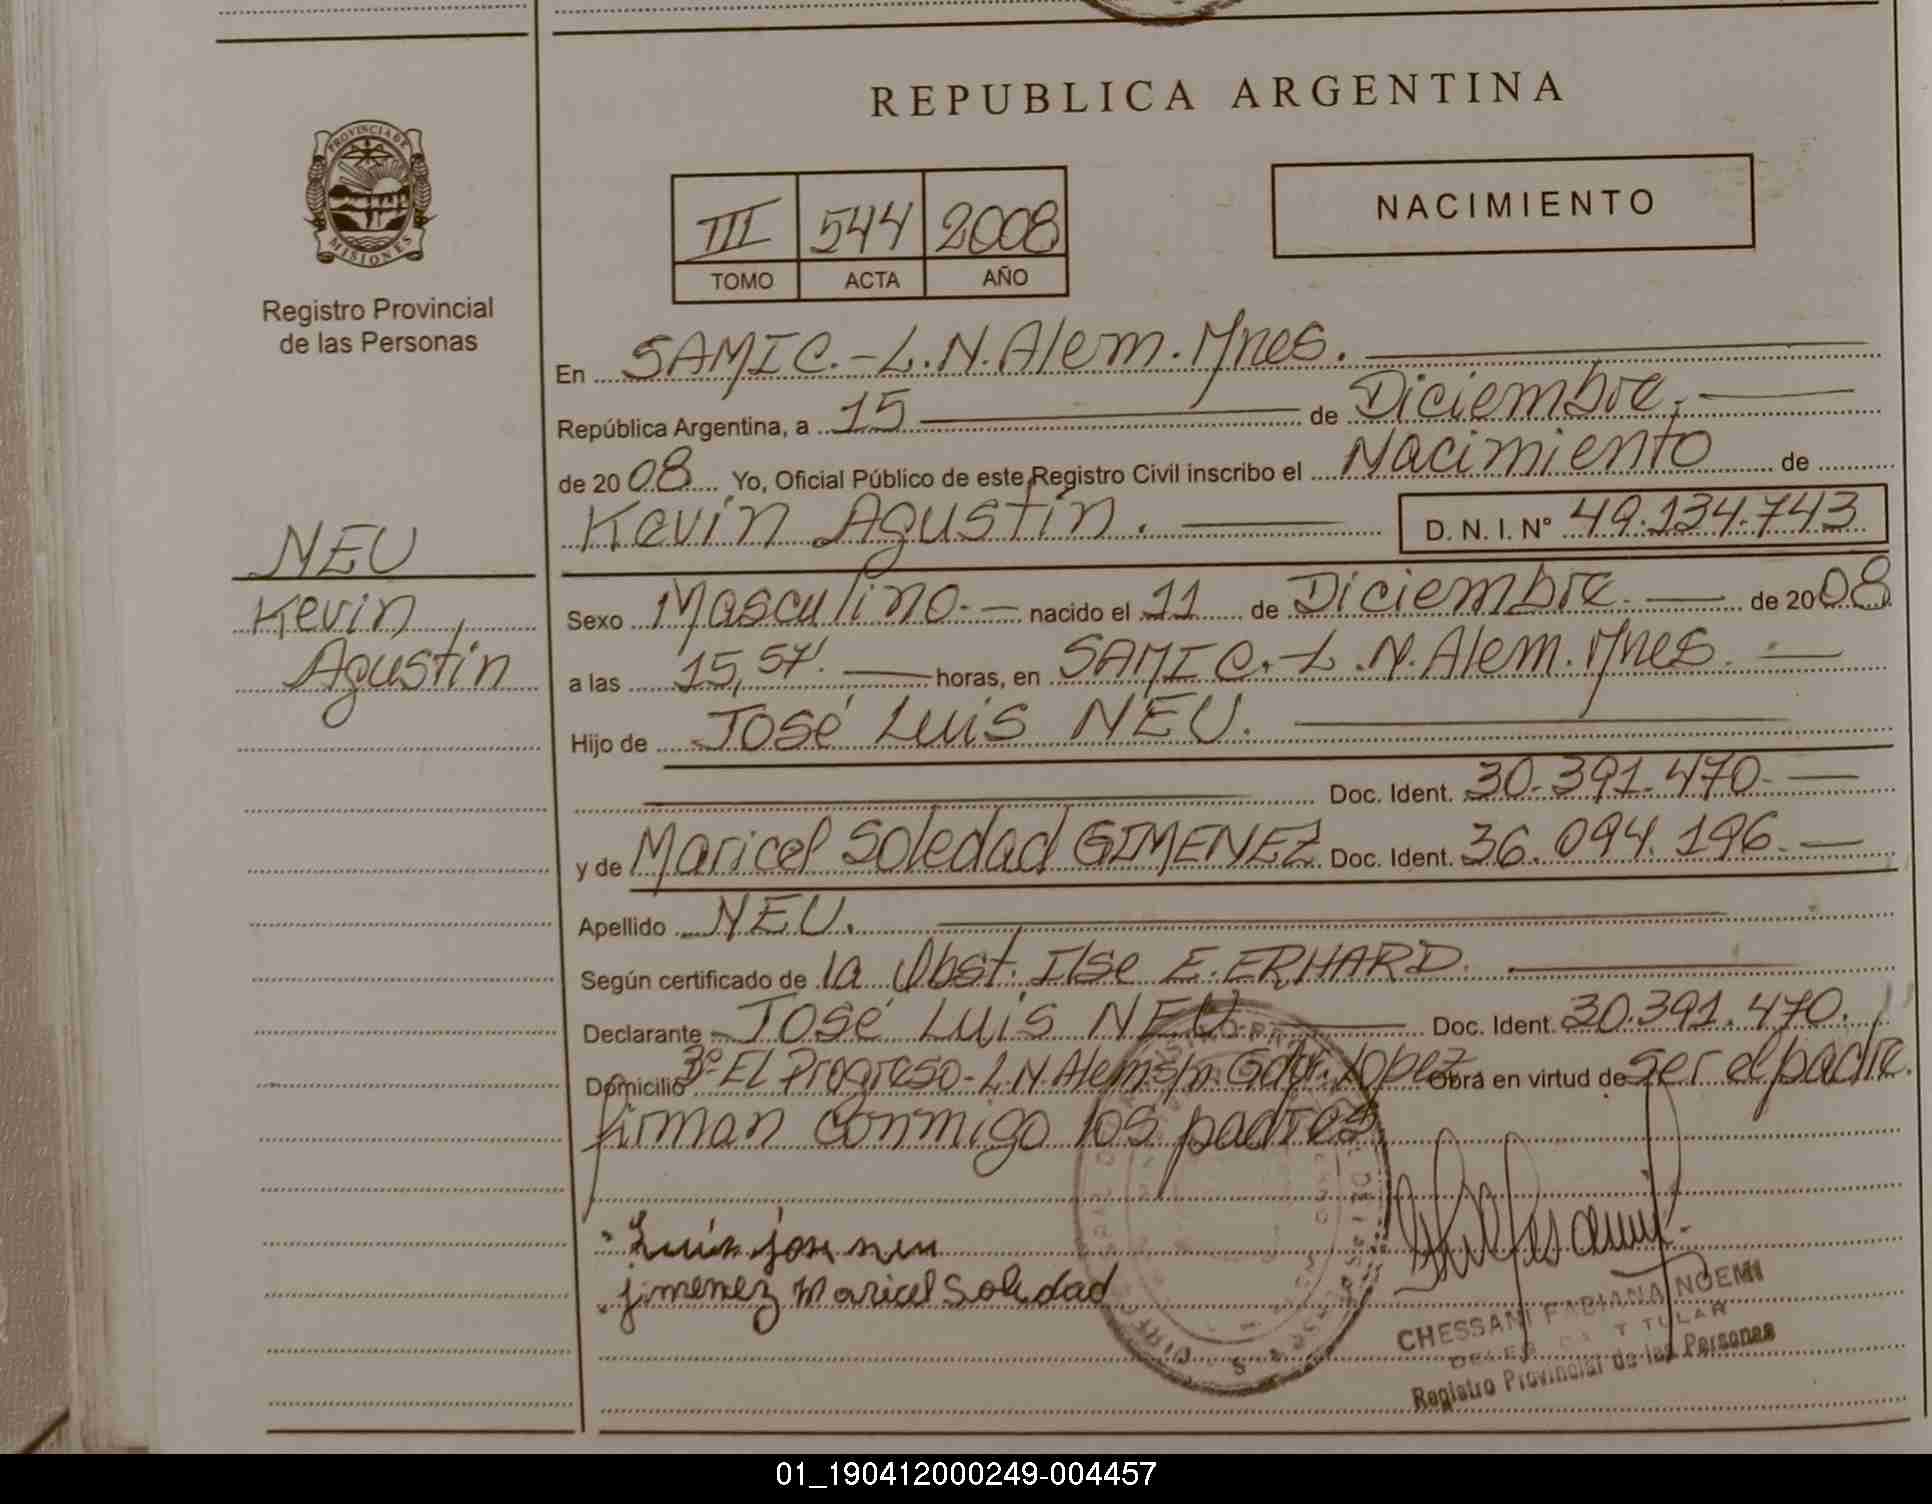 REPUBLICA ARGENTINA
PROVINCIA DE MISIONES
Registro Provincial
de las Personas
III 544 2008
TOMO ACTA AÑO
NACIMIENTO
En SAMIC.-L.N.Alem.Mnes.
República Argentina, a 15 de Diciembre.
de 2008 Yo, Oficial Público de este Registro Civil inscribo el Nacimiento de
Kevin Agustín. D. N. I. Nº 49.134.743
NEU
Kevin
Agustín
Sexo Masculino.- nacido el 11 de Diciembre. de 2008
a las 15,54. horas, en SAMIC.-L.N.Alem.Mnes.
Hijo de José Luis NEU.
Doc. Ident. 30.391.470.
y de Maricel Soledad GIMENEZ Doc. Ident. 36.094.196.
Apellido NEU.
Según certificado de la Obst. Ilse E. ERHARD.
Declarante José Luis NEU Doc. Ident. 30.391.470.
Domicilio Bº El Progreso-L.N.Alem s/n Gdor. Lopez Obra en virtud de ser el padre.
firman conmigo los padres
Luis jose neu
jimenez Maricel Soledad
CHESSANI FABIANA NOEMI
DELEGADA TITULAR
Registro Provincial de las Personas
01_190412000249-004457